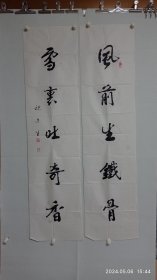 風前生鐵骨
雪裏吐奇香
2024.05.06 15:44